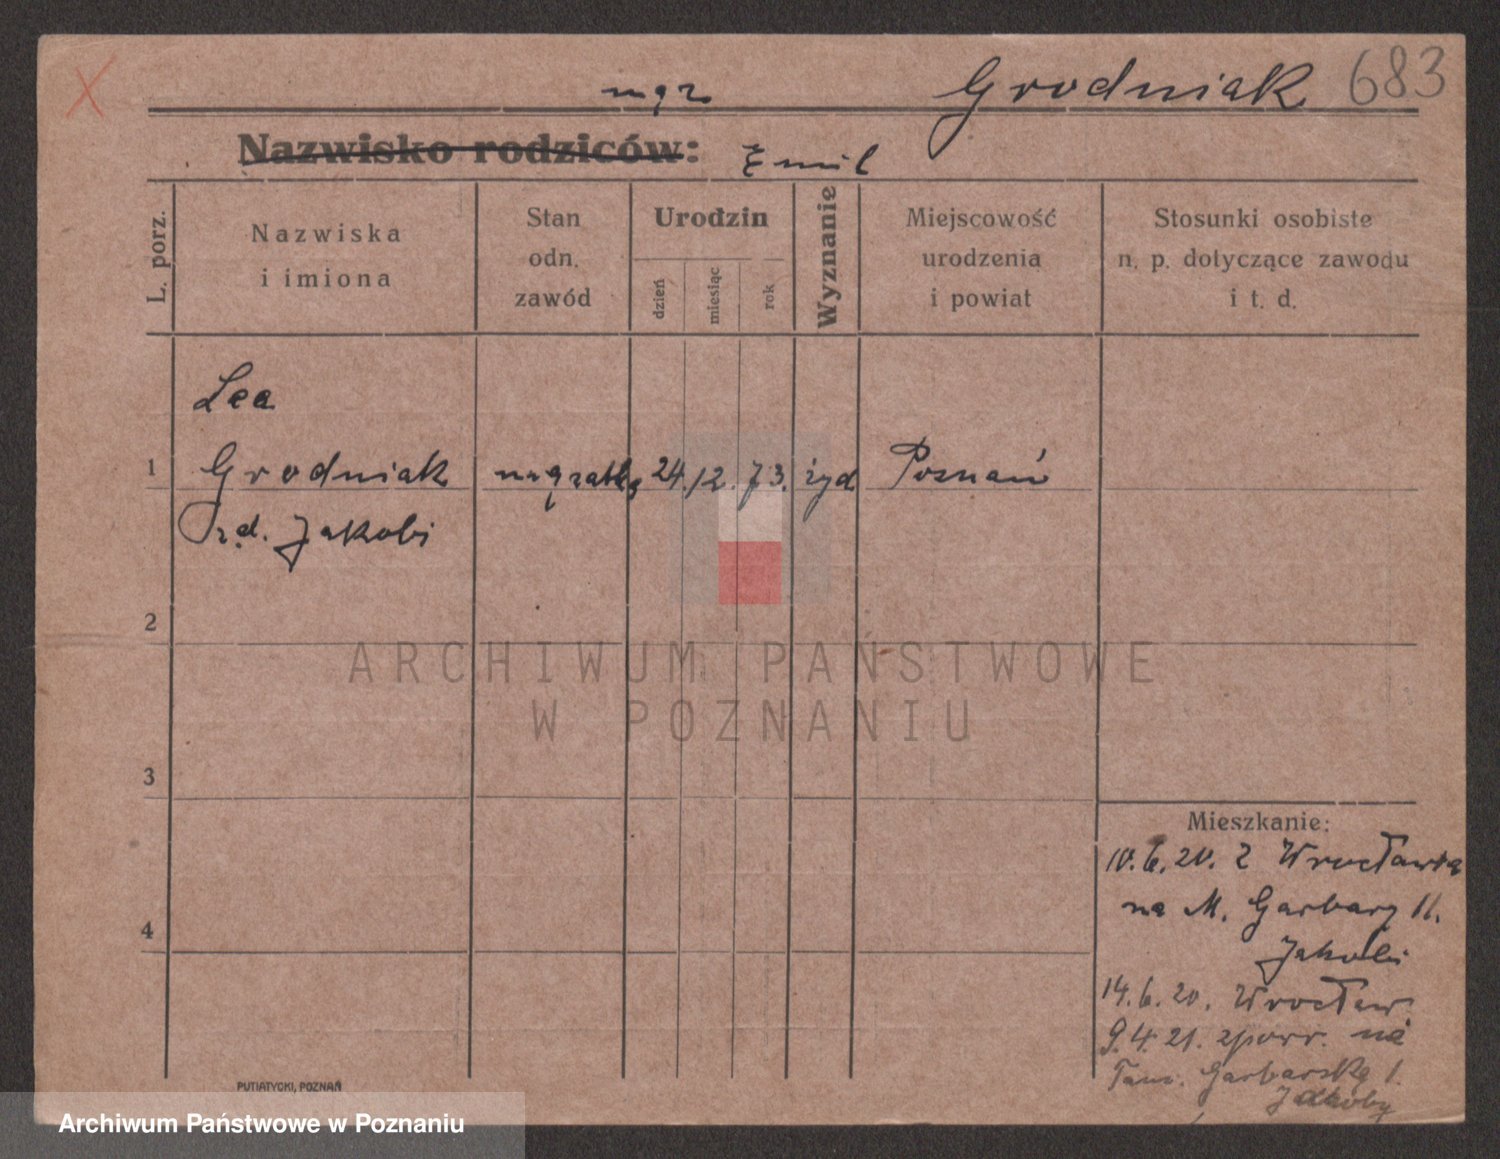 X
Grodniak 683
mąż
Nazwisko rodziców: Emil
L. porz.
Nazwiska
i imiona
Stan
odn.
zawód
Urodzin
dzień
miesiąc
rok
Wyznanie
Miejscowość
urodzenia
i powiat
Stosunki osobiste
n. p. dotyczące zawodu
i t. d.
Lea
1 Grodniak mężatka 24. 12. 73. żyd Poznań
Jakobi
2
3
4
Mieszkanie:
10.6.20. z Wrocławia
na M. Garbary 11.
Jakobi
14.6.20. Wrocław
9.4.21. zpowr. na
Garbarską 1.
Jakoby
PUTIATYCKI, POZNAŃ
ARCHIWUM PAŃSTWOWE
W POZNANIU
Archiwum Państwowe w Poznaniu